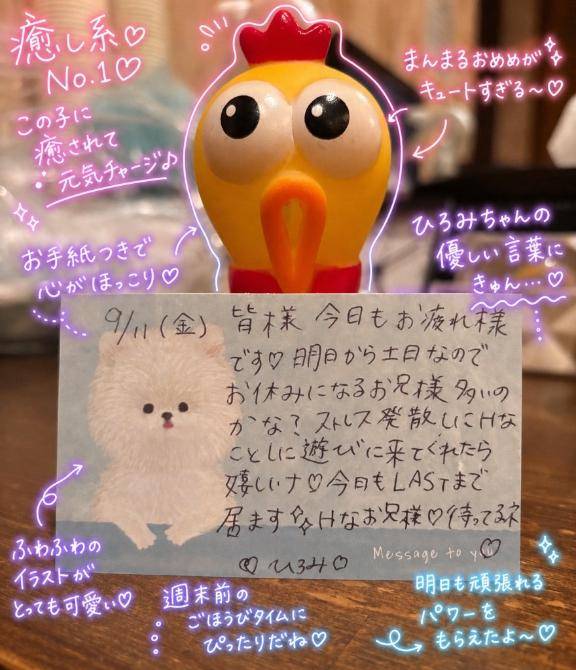 癒し系♡
No.1♡
この子に
癒されて
元気チャージ♪
まんまるおめめが
キュートすぎる〜♡
お手紙つきで
心がほっこり♡
ひろみちゃんの
優しい言葉に
きゅん…♡
9/11(金) 皆様 今日もお疲れ様
です♡明日から土日なので
お休みになるお兄様多いの
かな? ストレス発散しにHな
ことしに遊びに来てくれたら
嬉しいナ♡今日もLASTまで
居ます Hなお兄様♡待ってるネ
♡
Message to you
♡ひろみ♡
ふわふわの
イラストが
とっても可愛い♡
週末前の
ごほうびタイムに
ぴったりだね♡
明日も頑張れる
パワーを
もらえたよ〜♡